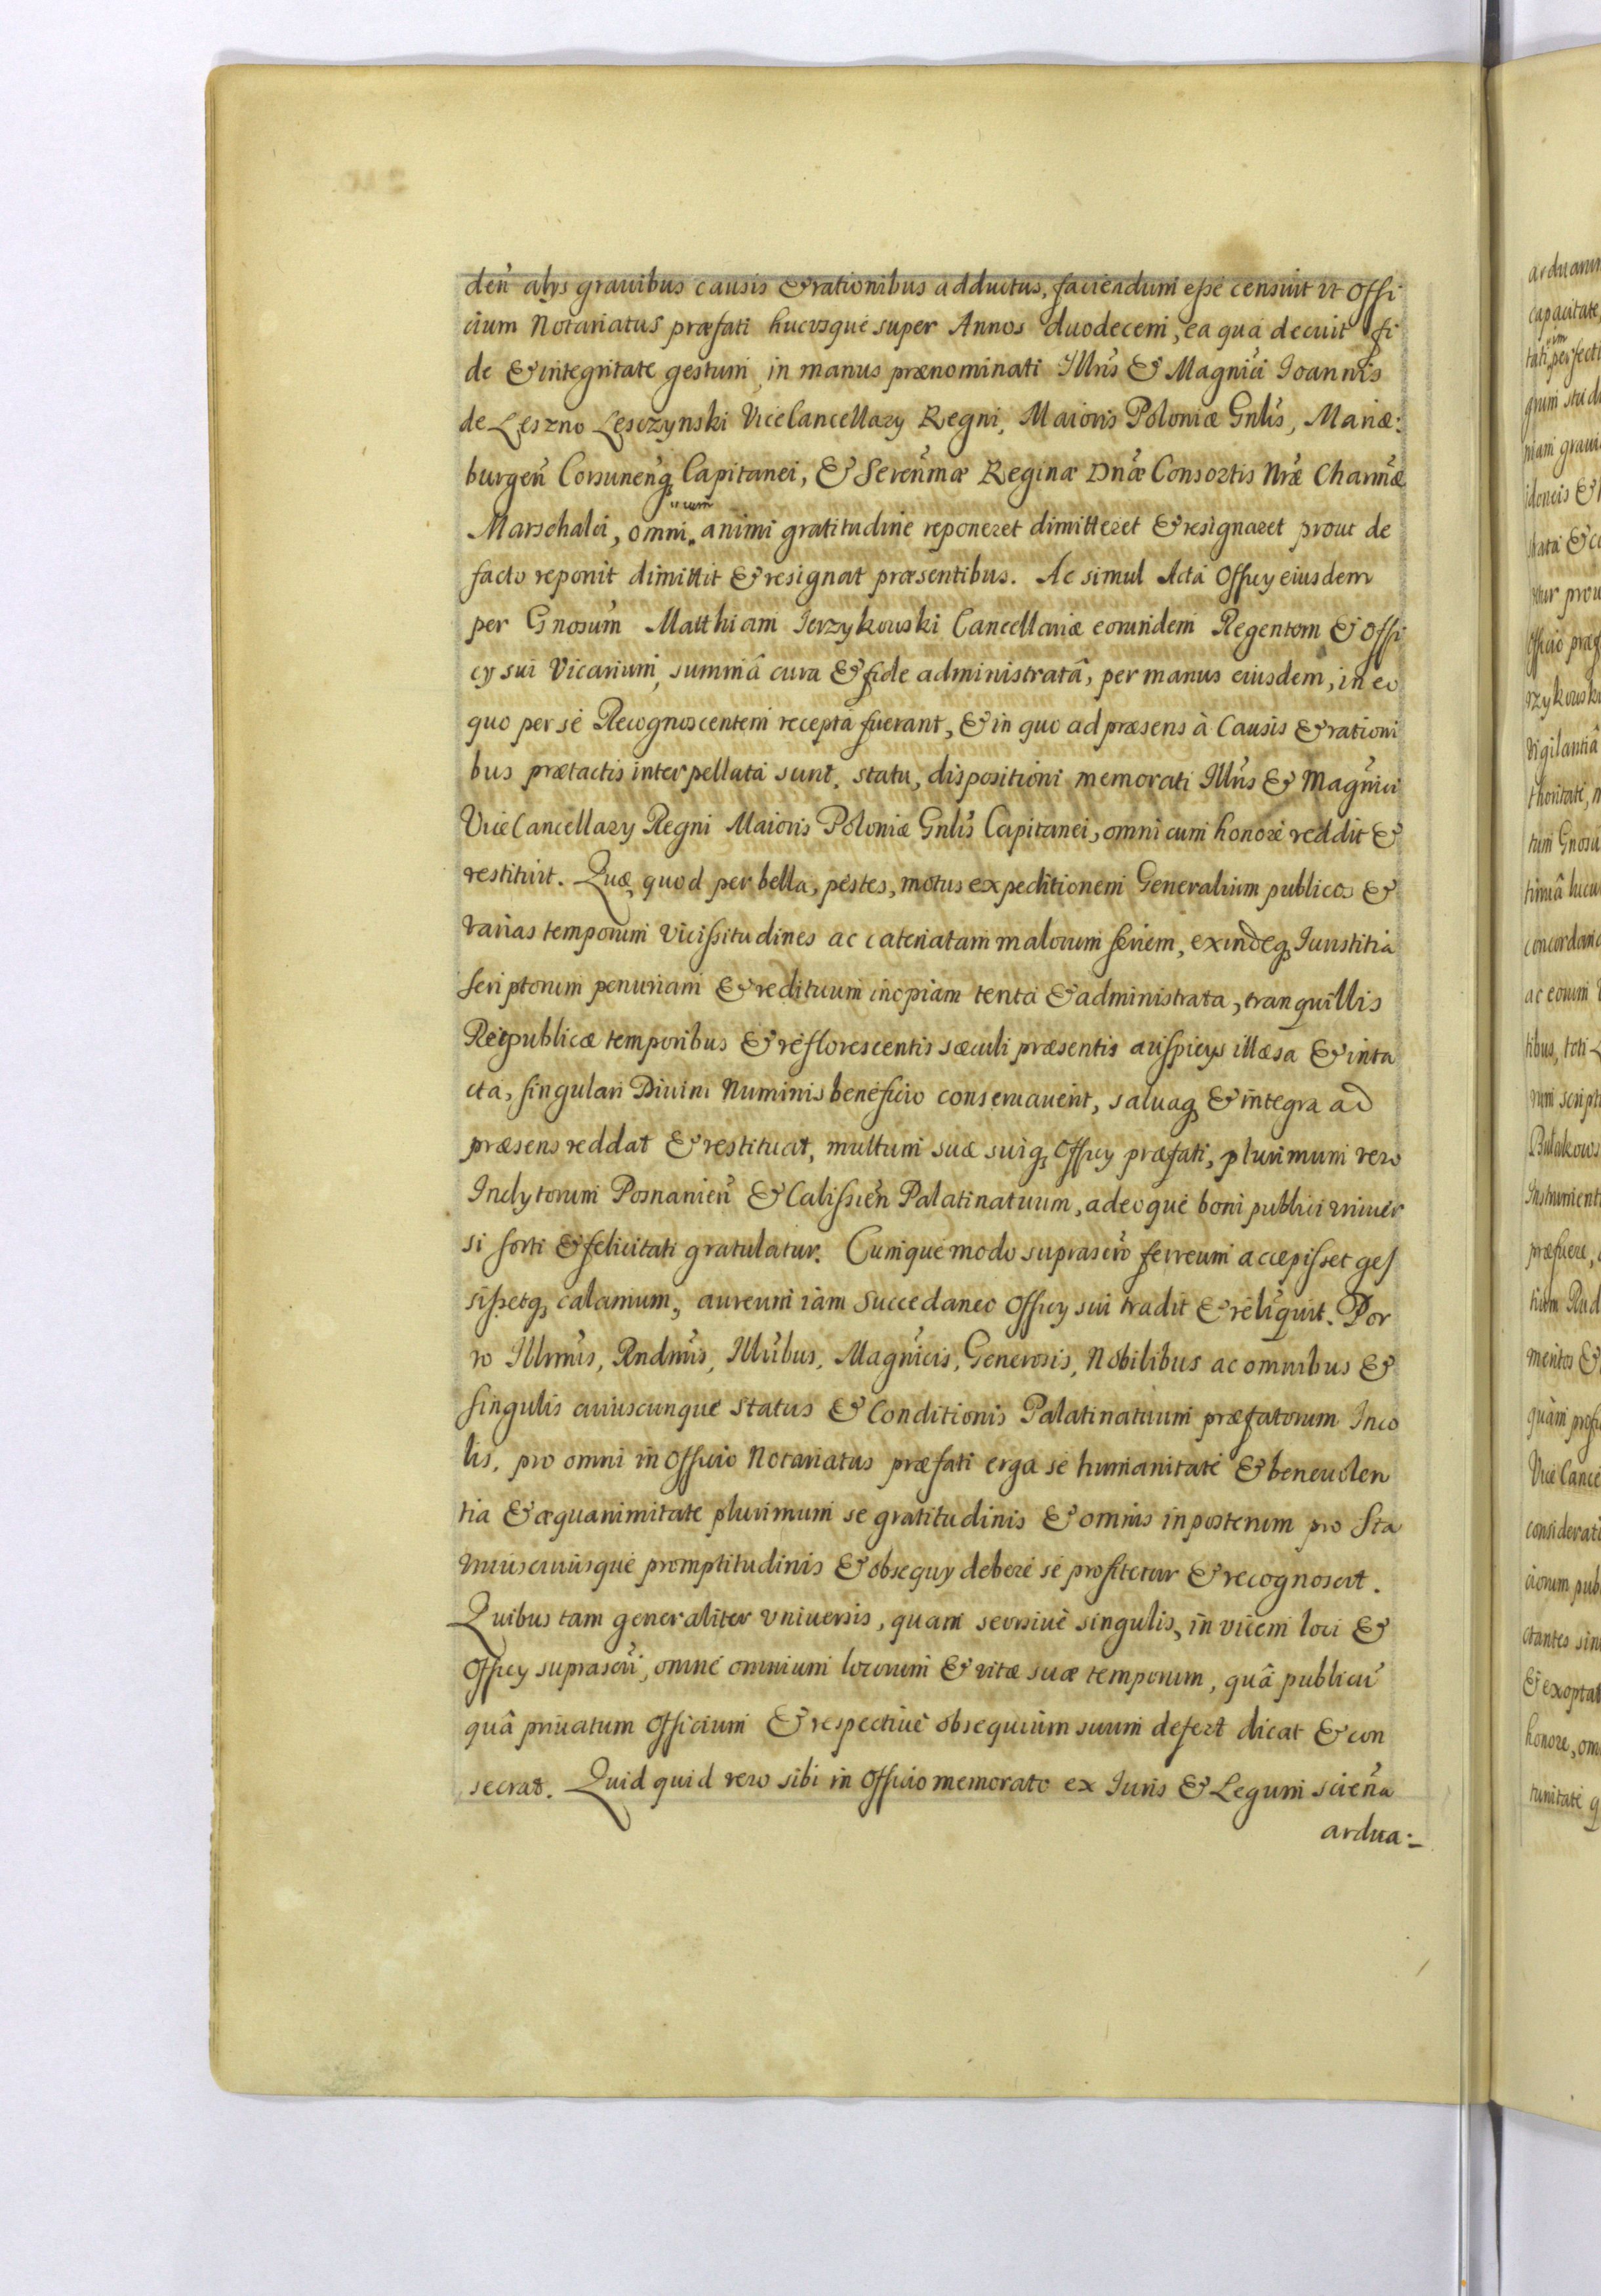 den̄ alys grauibus causis & rationibus adductus, faciendum esse censuit vt Offi
cium Notariatus præfati hucvsque super Annos duodecem, ea qua decuit fi
de & integritate gestum, in manus prænominati Illrīs & Magnīci Ioannis
de Leszno Lesczynski ViceCancellary Regni, Maioris Poloniæ Gnlīs, Mariæ:
burgen̄ Corsunen̄q3 Capitanei, & Seren̄mæ Reginæ Dnǣ Consortis Nrǣ Charīmæ
Marschalci, omni cum animi gratitudine reponeret dimitteret & resignaret prout de
facto reponit dimittit & resignat præsentibus. Ac simul Acta Officy eiusdem
per Gnosum̄ Matthiam Ierzykowski Cancellariæ eorundem Regentem & Offi
cy sui Vicarium, summâ cura & fide administratâ, per manus eiusdem, in eo
quo per se Recognoscentem recepta fuerant, & in quo ad præsens à Causis & rationi
bus prætactis interpellata sunt, statu, dispositioni memorati Illrīs & Magnīci
ViceCancellary Regni Maioris Poloniæ Gnlīs Capitanei, omni cum honore reddit &
restituit. Quæ, quod per bella, pestes, motus expeditionem Generalium publicos &
varias temporum vicissitudines ac catenatam malorum seriem, exindeq3 Iurustitia
scriptorum penuriam & redituum inopiam tenta & administrata, tranquillis
Reipublicæ temporibus & reflorescentis sæculi præsentis auspicys illæsa & inta
cta, singulari Diuini Numinis beneficio conseruauerit, saluaq3 & integra ad
præsens reddat & restituat, multum suæ suiq3 Officy præfati, plurimum vero
Inclytorum Posnanien̄ & Calissien̄ Palatinatuum, adeoque boni publici vniuer
si sorti & felicitati gratulatur. Cumque modo suprascrīo ferreum accepisset ges
sissetq3 calamum, aureum iam Succedaneo Officy sui tradit & reliquit. Por
ro Illrimīs, Rndmīs, Illrībus, Magnīcis, Generosis, Nobilibus ac omnibus &
singulis cuiuscunque Status & Conditionis Palatinatuum præfatorum Inco
lis, pro omni in Officio Notariatus præfati erga se humanitate & beneuolen
tia & æquanimitate plurimum se gratitudinis & omnis in posterum pro Sta
tu uniuscuiusque promptitudinis & obsequy debere se profitetur & recognoscit.
Quibus tam generaliter vniuersis, quam seorsiue singulis, in vicem loci &
Officy suprascrī, omne omnium locorum & vitæ suæ temporum, quâ publicū
quâ priuatum Officium & respectiue obsequium suum defert dicat & con
secrat. Quid quid vero sibi in Officio memorato ex Iuris & Legum scien̄a
ardua: